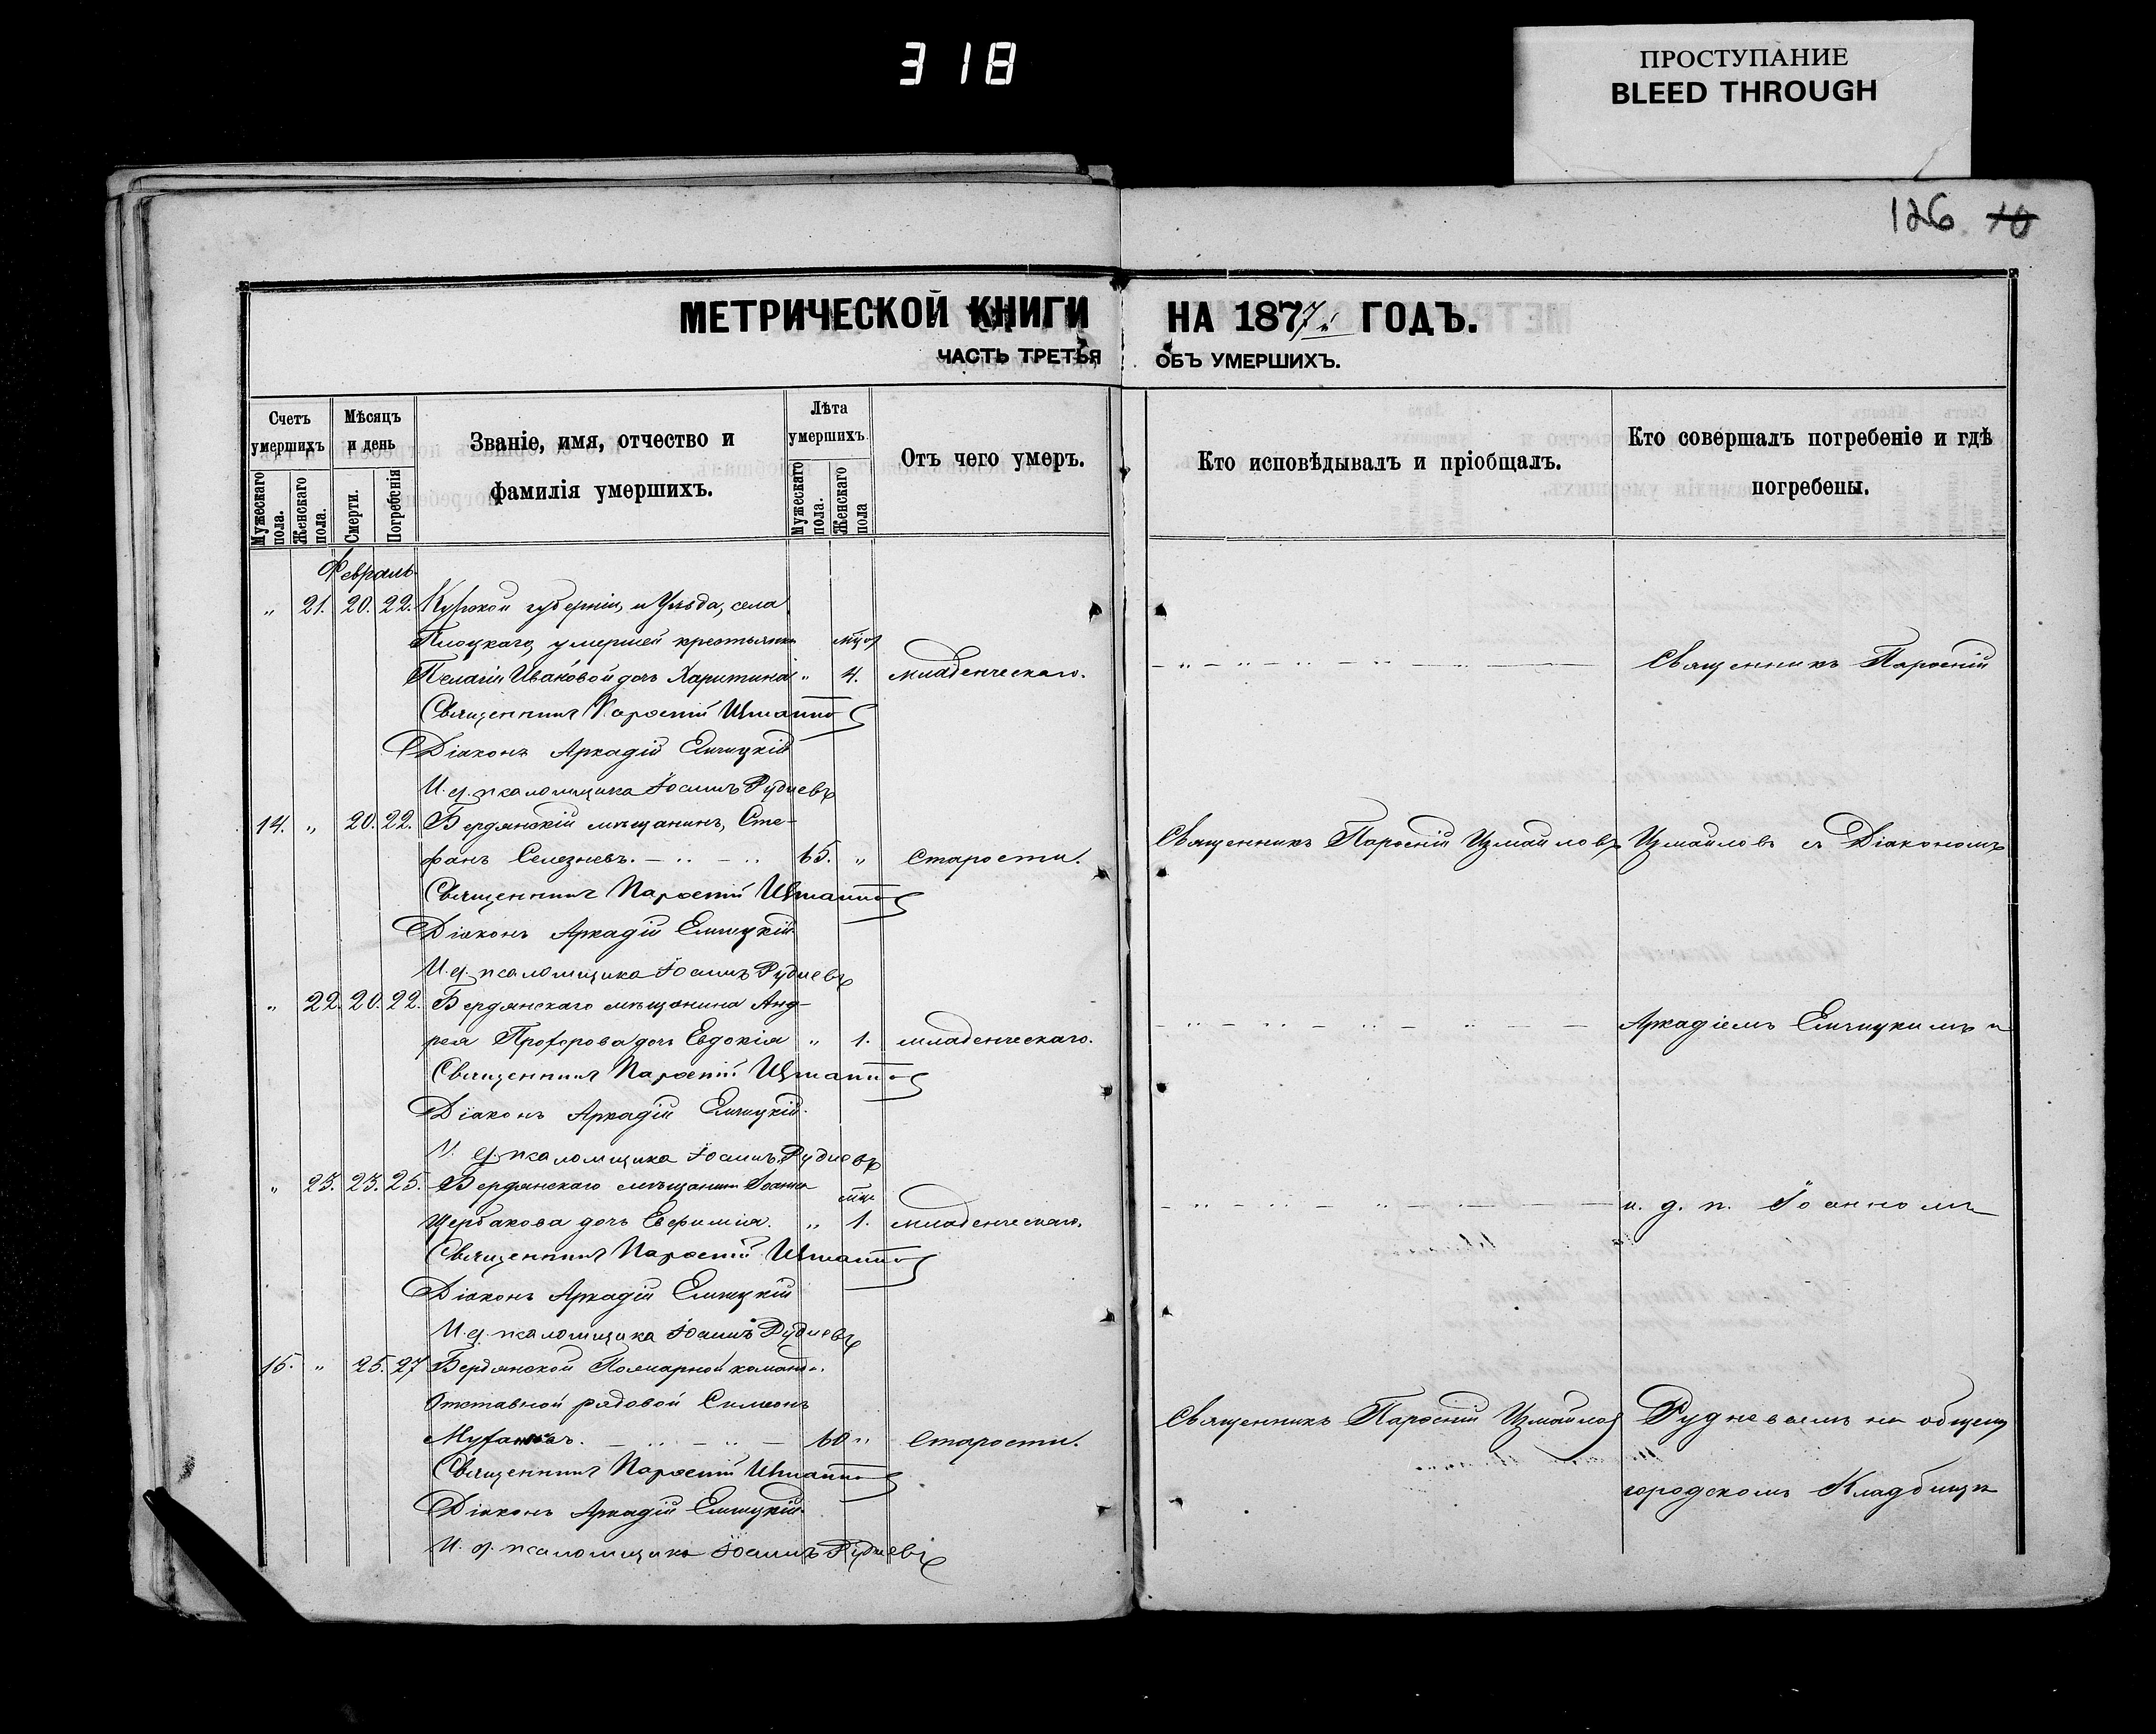 318
ПРОСТУПАНИЕ
BLEED THROUGH
126 10
МЕТРИЧЕСКОЙ КНИГИ НА 1877 ГОДЪ.
ЧАСТЬ ТРЕТЬЯ ОБЪ УМЕРШИХЪ.
Счетъ умершихъ
Мужескаго пола.
Женскаго пола.
Мѣсяцъ и день
Смерти.
Погребенія
Званіе, имя, отчество и
фамилія умершихъ.
Лѣта умершихъ
Мужескаго пола.
Женскаго пола
Отъ чего умеръ.
Кто исповѣдывалъ и пріобщалъ.
Кто совершалъ погребеніе и гдѣ
погребены.
Февраль
„ 21. 20. 22. Курской губерніи, и Уѣзда, села
умершей крестьянки
Пелагіи Ивановой дочь Харитина „ 4. младенческаго. Священникъ Парѳеній
Священникъ Парѳеній
Діаконъ Аркадій
И. д. псаломщика Іоаннъ Рудневъ
14. „ 20. 22. Бердянскій мѣщанинъ, Сте-
фанъ Селезневъ. 65. „ Старости. Священникъ Парѳеній Измаиловъ Измаиловъ съ Діакономъ
Священникъ Парѳеній
Діаконъ Аркадій
И. д. псаломщика Іоаннъ Рудневъ
„ 22. 20. 22. Бердянскаго мѣщанина Анд-
рея Прохорова дочь Евдокія „ 1. младенческаго. Аркадіемъ и
Священникъ Парѳеній
Діаконъ Аркадій
И. д. псаломщика Іоаннъ Рудневъ
„ 23. 23. 25. Бердянскаго мѣщанина Іоанна
Щербакова дочь Евфимія. „ 1. младенческаго. и. д. п. Іоанномъ
Священникъ Парѳеній
Діаконъ Аркадій
И. д. псаломщика Іоаннъ Рудневъ
15. „ 25. 27 Бердянской Пожарной команды
Отставной рядовой Симеонъ
60 „ Старости. Священникъ Парѳеній Измаиловъ Рудневымъ на общемъ
Священникъ Парѳеній
городскомъ Кладбищѣ
Діаконъ Аркадій
И. д. псаломщика Іоаннъ Рудневъ